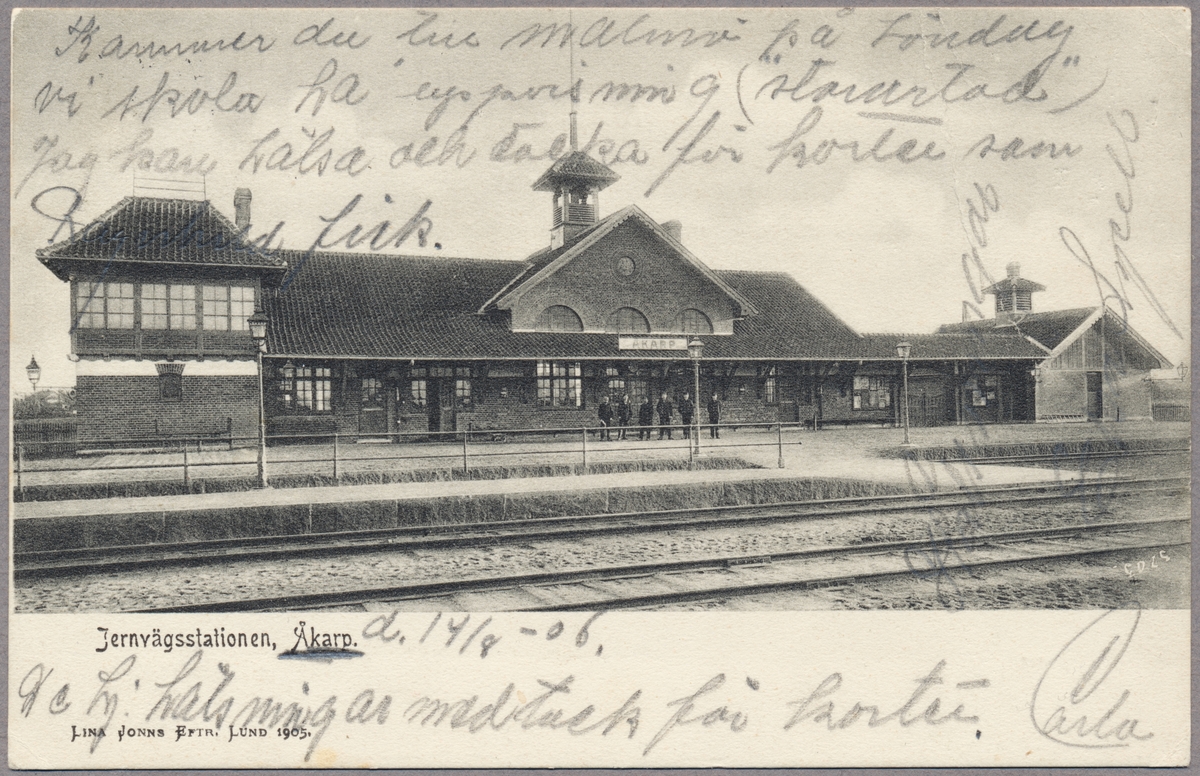 Kammer du till malmö på Söndag
vi skola ha uppvisning ("storartad")
Jag kan hälsa och tacka för korten som
fick.
ÅKARP
5025
Jernvägsstationen, Åkarp. d. 14/8 -06.
De hj. hälsningar med tack för korten.
LINA JONNS EFTR. LUND 1905.
Carla